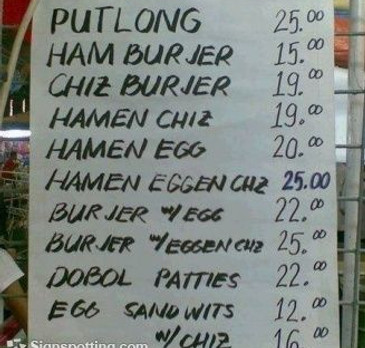 PUTLONG 25.00
HAM BURJER 15.00
CHIZ BURJER 19.00
HAMEN CHIZ 19.00
HAMEN EGG 20.00
HAMEN EGGEN CHZ 25.00
BURJER W/EGG 22.00
BURJER W/EGGEN CHZ 25.00
DOBOL PATTIES 22.00
EGG SANDWITS 12.00
W/CHIZ 16.00
Signspotting.com